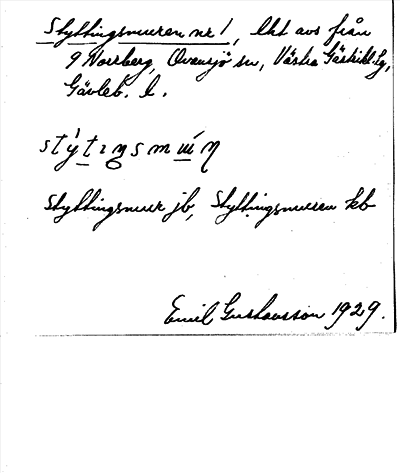 Styttingsmuren nr 1, lht avs från
9 Norrberg, Ovansjö sn, Västra Gästrikl. tg,
Gävleb. l.
Styttingsmur jb, Styttingsmuren kb
Emil Gustavsson 1929.